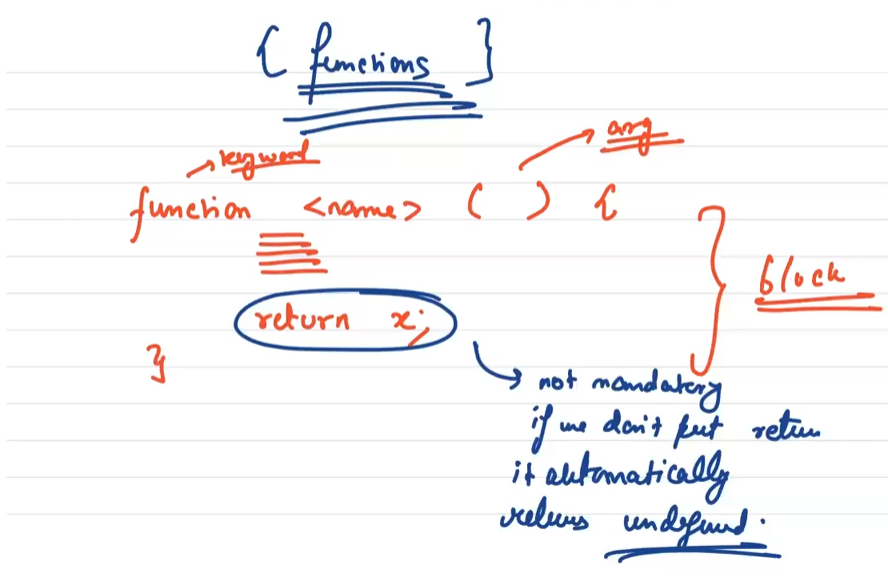 { functions }
arg
keyword
function <name> ( ) {
block
return x;
}
not mandatory
if we don't put return
it automatically
returns undefined.